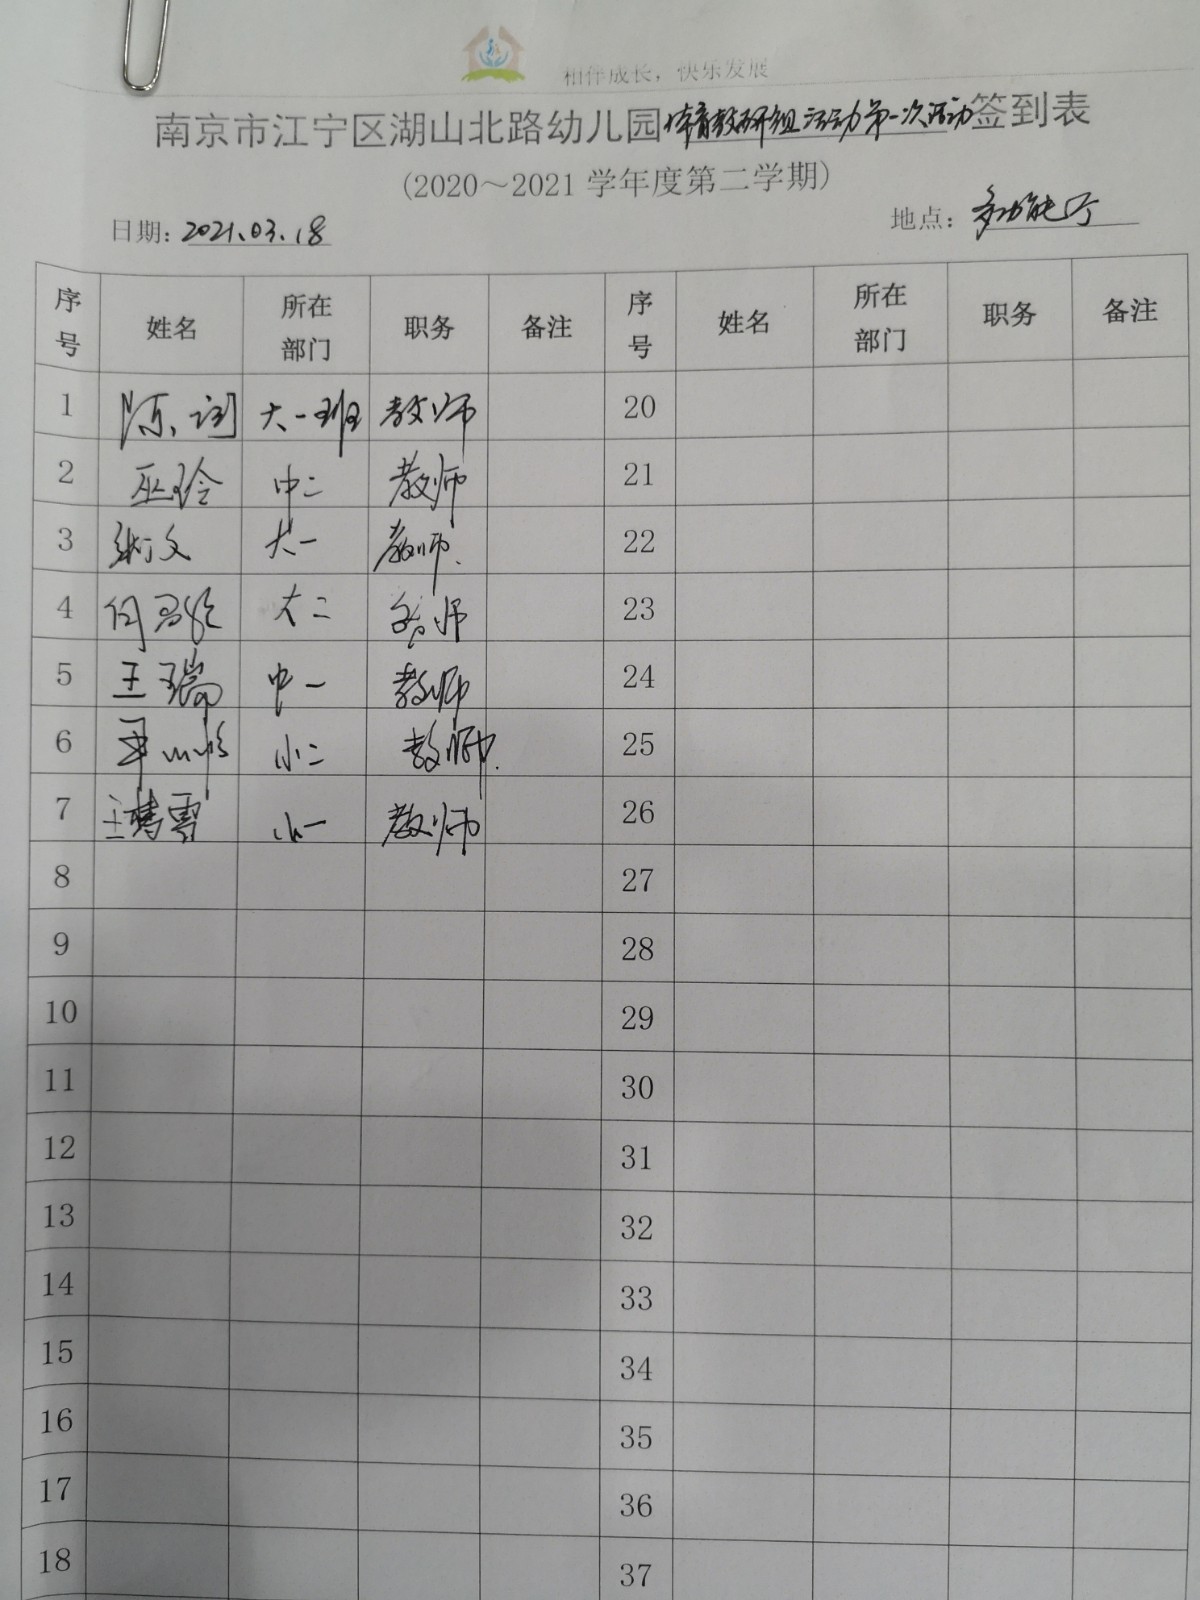 相伴成长，快乐发展
南京市江宁区湖山北路幼儿园体育教研组活动第一次活动签到表
(2020～2021 学年度第二学期)
日期：2021.03.18 地点：多功能厅
序号 姓名 所在部门 职务 备注 序号 姓名 所在部门 职务 备注
1 陈 大一班 教师 20
2 巫玲 中二 教师 21
3 文 大一 教师. 22
4 何 大二 老师 23
5 王瑞 中一 教师 24
6 小二 教师. 25
7 王梦雪 小一 教师 26
8 27
9 28
10 29
11 30
12 31
13 32
14 33
15 34
16 35
17 36
18 37